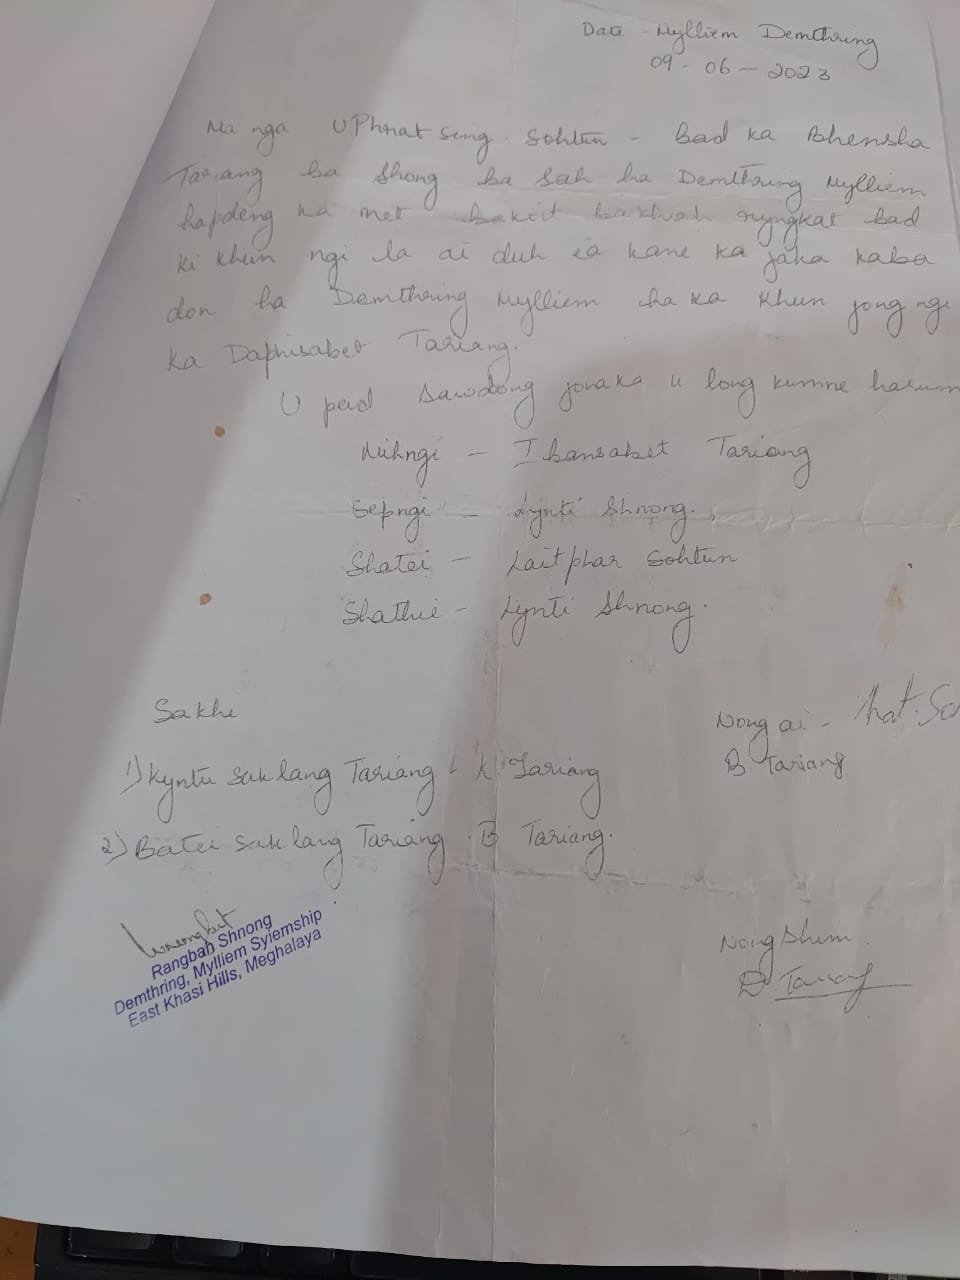 Date - Mylliem Demthring
09 - 06 - 2023
Ma nga U Phrat Seng Sohtun - bad ka Bhensha
Tariang ba shong ba sah ha Demthring Mylliem
hapdeng ka met bakoit bakhiah ryngkat bad
ki khun ngi la ai duh ia kane ka jaka kaba
don ha Demthring Mylliem ha ka khun jong ngi
ka Daphisabet Tariang.
U pud sawdong jong ka u long kumne harum
Mihngi - Ibansabet Tariang
Sepngi - Lynti Shnong.
Shatei - Laitphar Sohtun
Shathie - Lynti Shnong.
Sakhi
Nong ai -
B Tariang
1) Kyntu saklang Tariang - K. Tariang
2) Batei saklang Tariang - B Tariang.
Rangbah Shnong
Demthring, Mylliem Syiemship
East Khasi Hills, Meghalaya
Nongshim
D Tariang